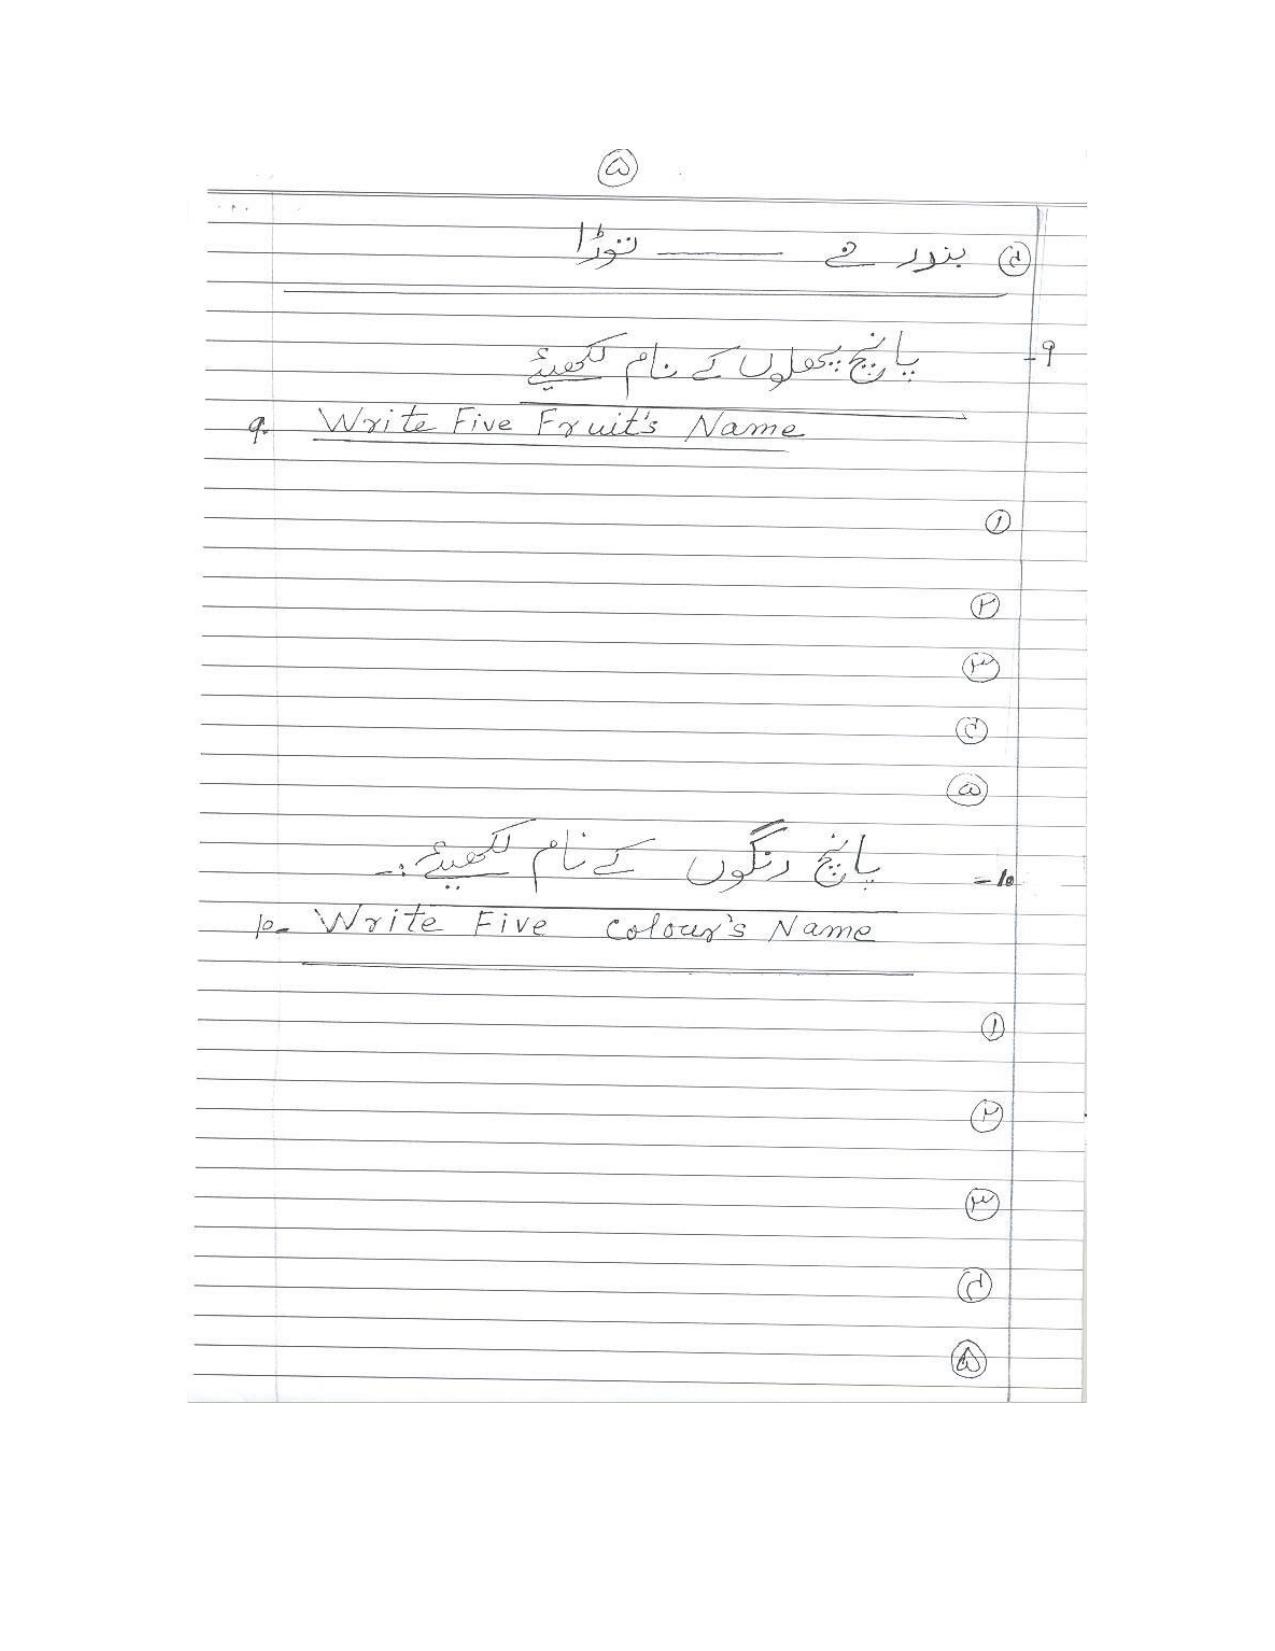 ۵
۴ بندر نے ——— توڑا
۹- پانچ پھلوں کے نام لکھیئے
9. Write Five Fruit's Name
۱
۲
۳
۴
۵
۱۰- پانچ رنگوں کے نام لکھیئے :-
10- Write Five Colour's Name
۱
۲
۳
۴
۵